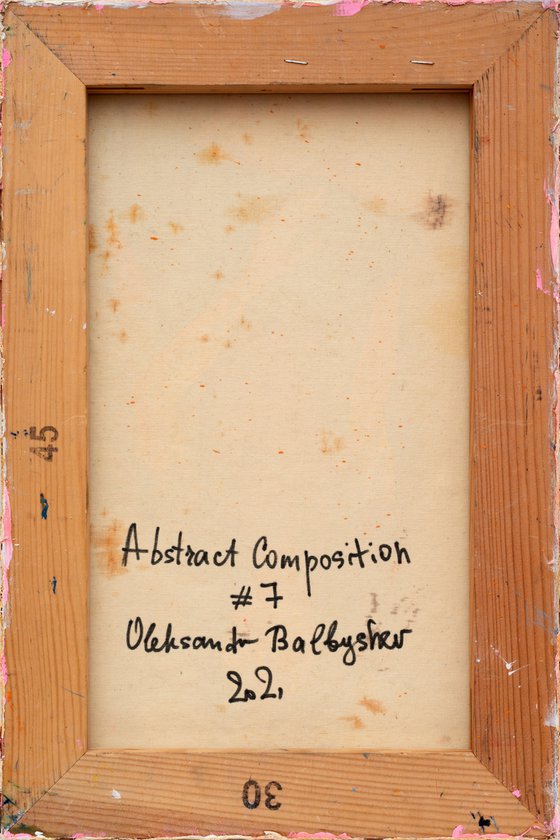 45
Abstract Composition
# 7
Oleksandr Balbyshev
2021
30